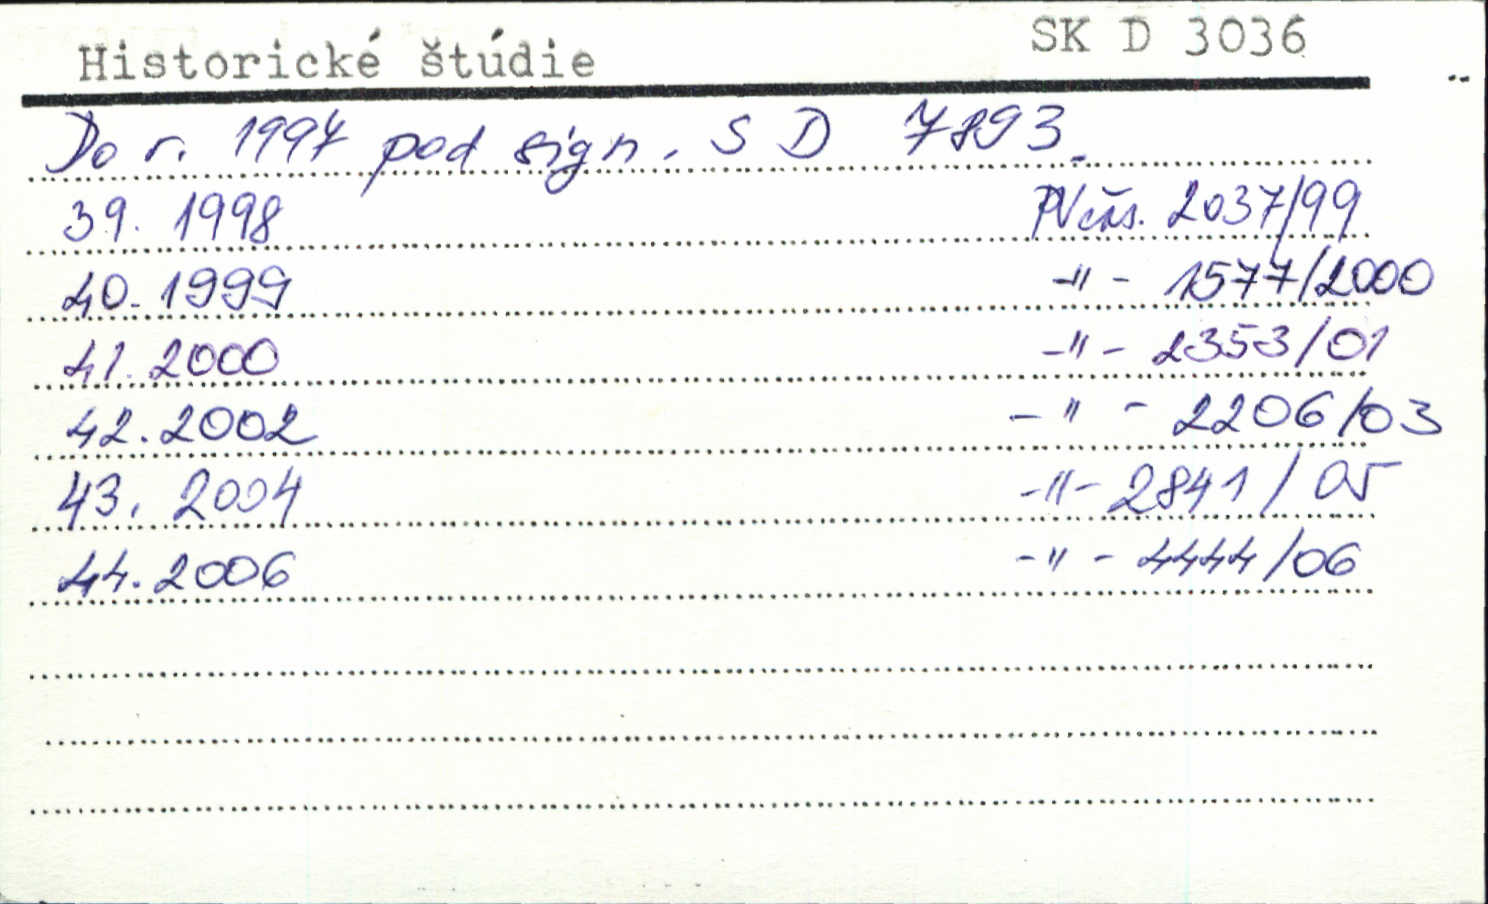 Historické štúdie SK D 3036
Do r. 1997 pod sign. S D 7893.
39. 1998 PV čas. 2037/99
40. 1999 -"- 1577/2000
41. 2000 -"- 2353/01
42. 2002 -"- 2206/03
43. 2004 -"- 2841/05
44. 2006 -"- 4444/06